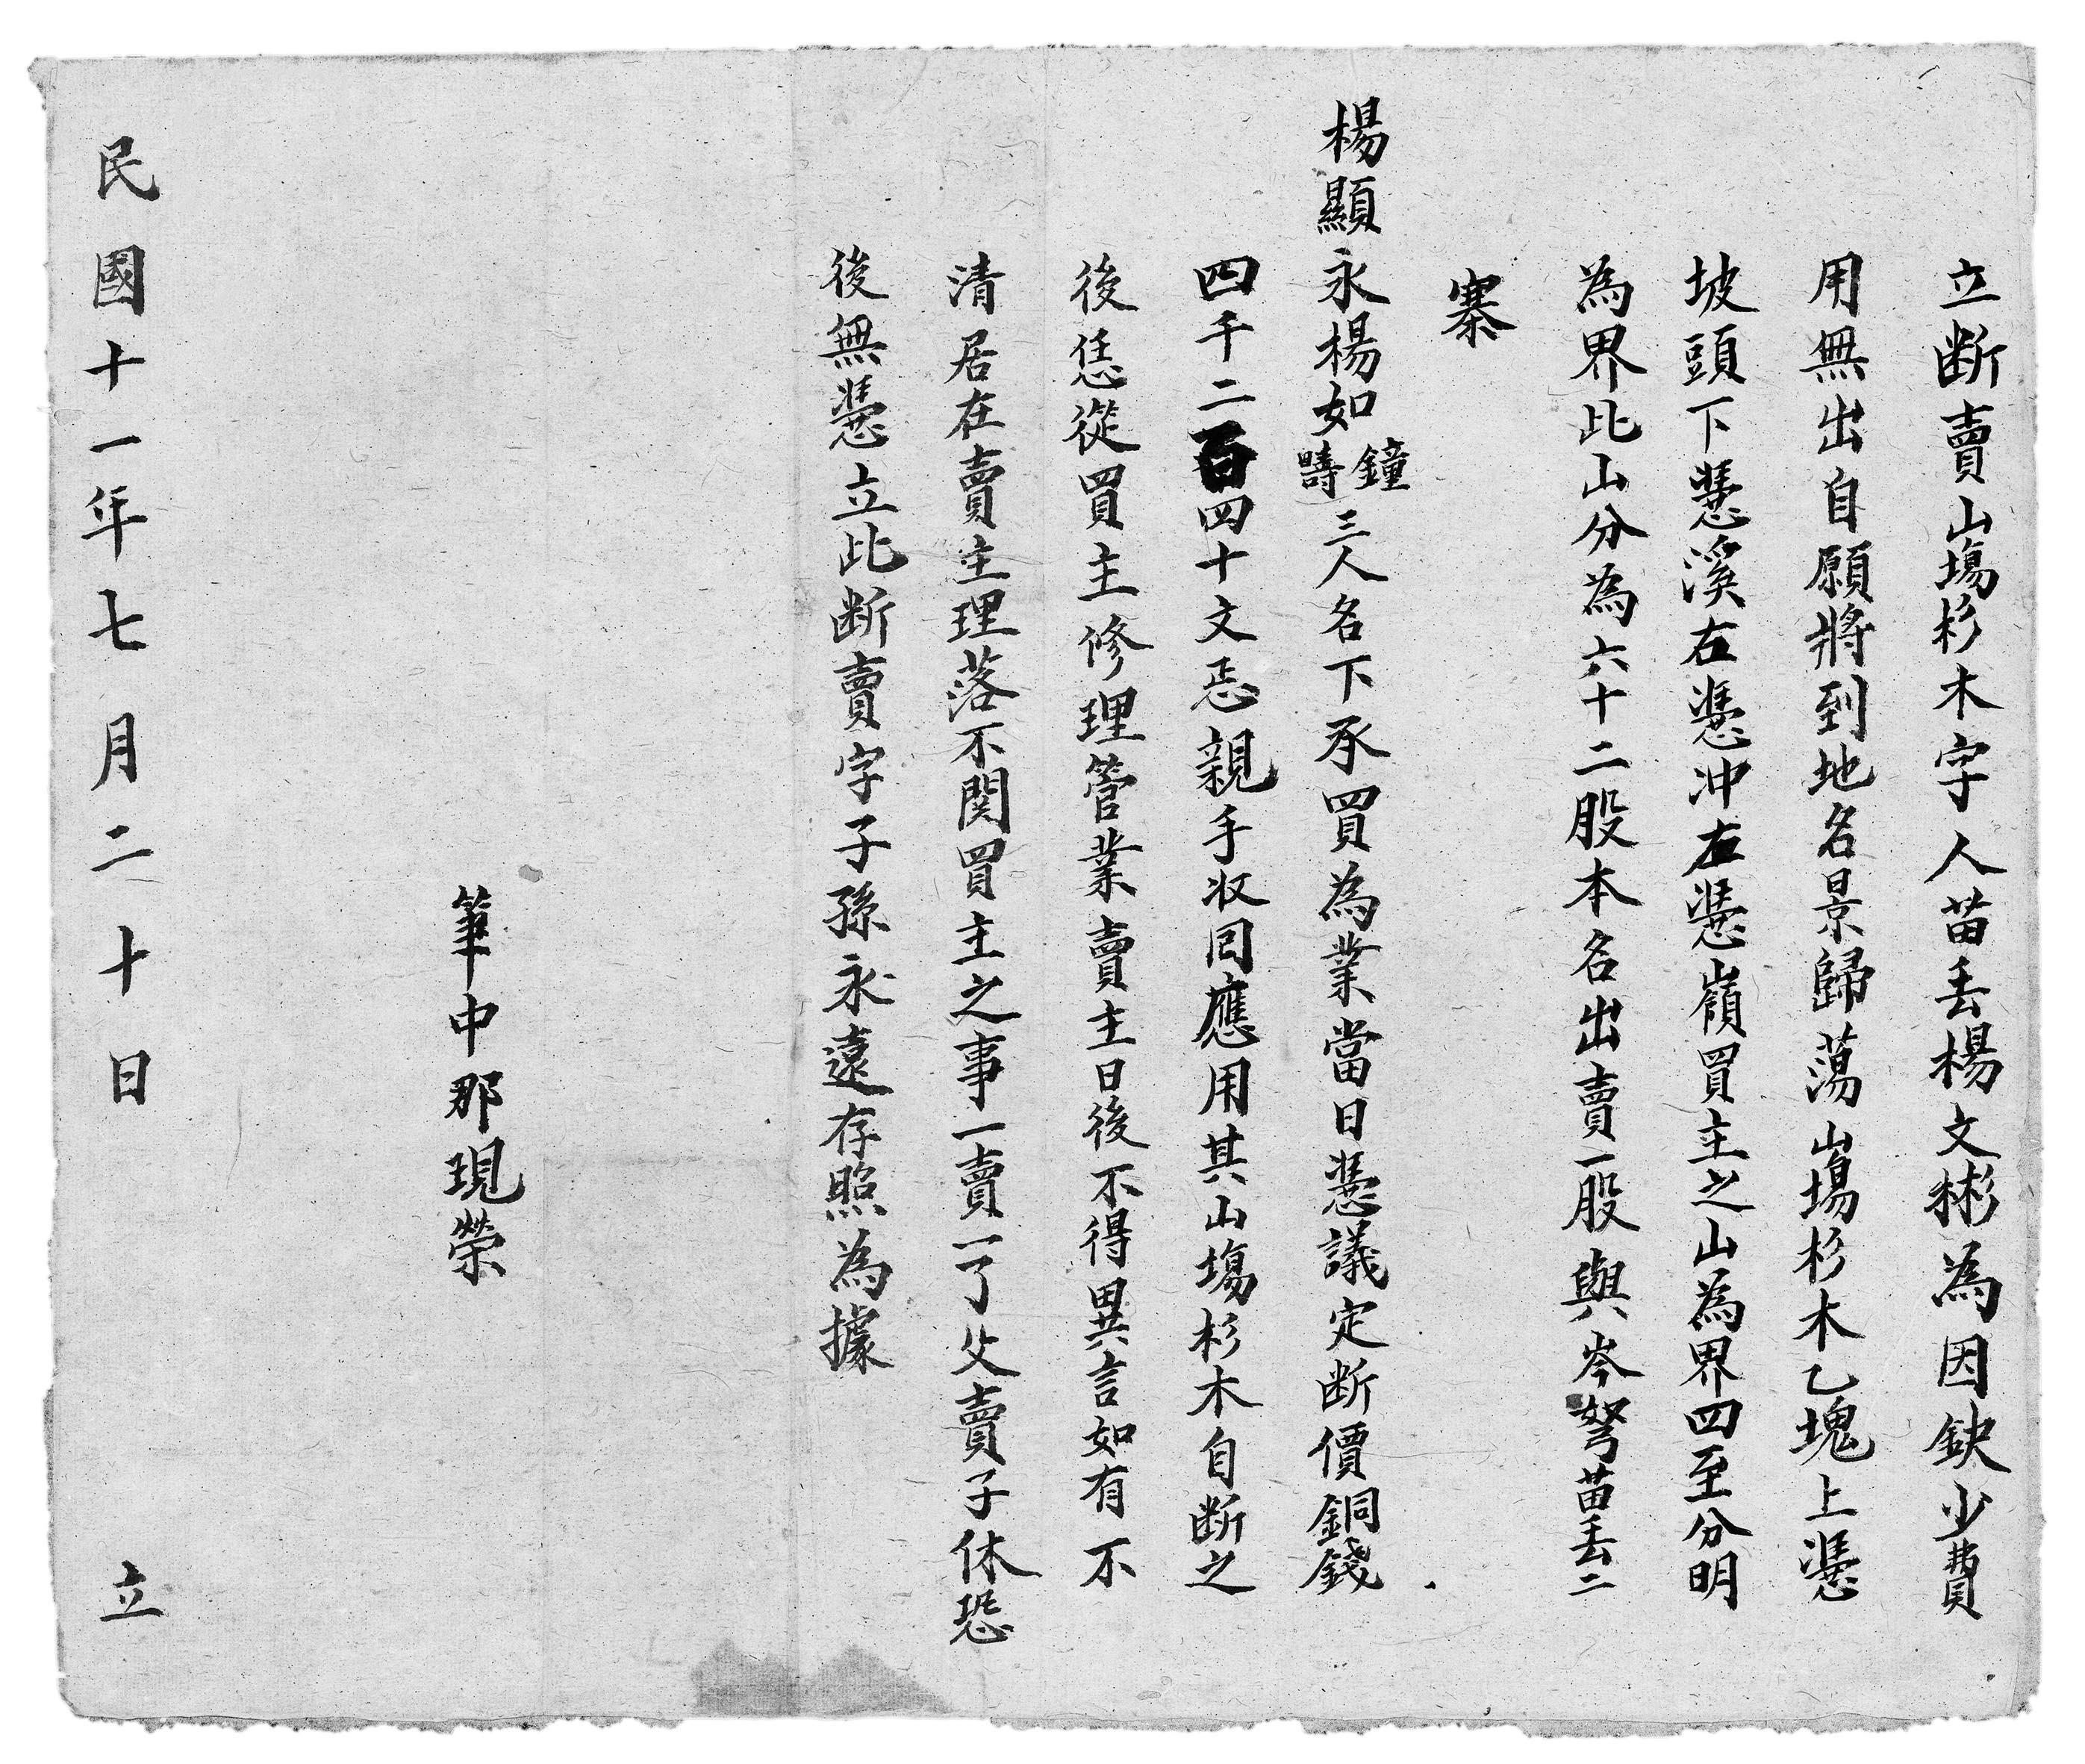 立断賣山塲杉木字人苗丢楊文彬為因缺少費
用無出自願將到地名景歸蕩山塲杉木乙塊上憑
坡頭下憑溪右憑冲左憑嶺買主之山為界四至分明
為界比山分為六十二股本名出賣一股與岑孥苗丢二
寨
楊顯永楊如鐘疇三人名下承買為業當日憑議定断價銅錢
四千二百四十文㤙親手收囘應用其山塲杉木自断之
後恁從買主修理管業賣主日後不得異言如有不
清居在賣主理落不関買主之事一賣一了父賣子休恐
後無憑立此断賣字子孫永遠存照為據
筆中那現榮
民國十一年七月二十日立